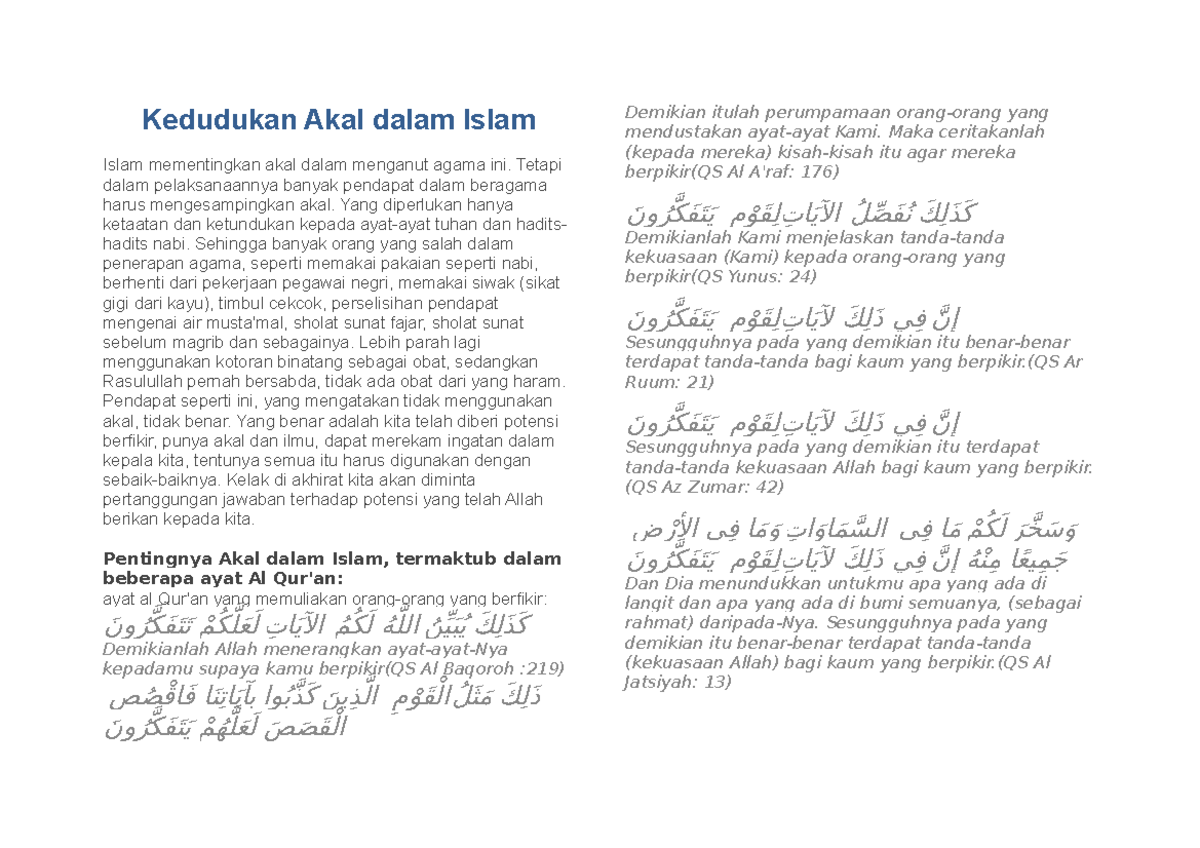 Kedudukan Akal dalam Islam
Islam mementingkan akal dalam menganut agama ini. Tetapi
dalam pelaksanaannya banyak pendapat dalam beragama
harus mengesampingkan akal. Yang diperlukan hanya
ketaatan dan ketundukan kepada ayat-ayat tuhan dan hadits-
hadits nabi. Sehingga banyak orang yang salah dalam
penerapan agama, seperti memakai pakaian seperti nabi,
berhenti dari pekerjaan pegawai negri, memakai siwak (sikat
gigi dari kayu), timbul cekcok, perselisihan pendapat
mengenai air musta'mal, sholat sunat fajar, sholat sunat
sebelum magrib dan sebagainya. Lebih parah lagi
menggunakan kotoran binatang sebagai obat, sedangkan
Rasulullah pernah bersabda, tidak ada obat dari yang haram.
Pendapat seperti ini, yang mengatakan tidak menggunakan
akal, tidak benar. Yang benar adalah kita telah diberi potensi
berfikir, punya akal dan ilmu, dapat merekam ingatan dalam
kepala kita, tentunya semua itu harus digunakan dengan
sebaik-baiknya. Kelak di akhirat kita akan diminta
pertanggungan jawaban terhadap potensi yang telah Allah
berikan kepada kita.
Pentingnya Akal dalam Islam, termaktub dalam
beberapa ayat Al Qur'an:
ayat al Qur'an yang memuliakan orang-orang yang berfikir:
كَذَلِكَ يُبَيِّنُ اللَّهُ لَكُمُ الآيَاتِ لَعَلَّكُمْ تَتَفَكَّرُونَ
Demikianlah Allah menerangkan ayat-ayat-Nya
kepadamu supaya kamu berpikir(QS Al Baqoroh :219)
ذَلِكَ مَثَلُ الْقَوْمِ الَّذِينَ كَذَّبُوا بِآيَاتِنَا فَاقْصُصِ
الْقَصَصَ لَعَلَّهُمْ يَتَفَكَّرُونَ
Demikian itulah perumpamaan orang-orang yang
mendustakan ayat-ayat Kami. Maka ceritakanlah
(kepada mereka) kisah-kisah itu agar mereka
berpikir(QS Al A'raf: 176)
كَذَلِكَ نُفَصِّلُ الآيَاتِ لِقَوْمٍ يَتَفَكَّرُونَ
Demikianlah Kami menjelaskan tanda-tanda
kekuasaan (Kami) kepada orang-orang yang
berpikir(QS Yunus: 24)
إِنَّ فِي ذَلِكَ لآيَاتٍ لِقَوْمٍ يَتَفَكَّرُونَ
Sesungguhnya pada yang demikian itu benar-benar
terdapat tanda-tanda bagi kaum yang berpikir.(QS Ar
Ruum: 21)
إِنَّ فِي ذَلِكَ لآيَاتٍ لِقَوْمٍ يَتَفَكَّرُونَ
Sesungguhnya pada yang demikian itu terdapat
tanda-tanda kekuasaan Allah bagi kaum yang berpikir.
(QS Az Zumar: 42)
وَسَخَّرَ لَكُمْ مَا فِى السَّمَاوَاتِ وَمَا فِى الأَرْضِ
جَمِيعًا مِنْهُ إِنَّ فِي ذَلِكَ لآيَاتٍ لِقَوْمٍ يَتَفَكَّرُونَ
Dan Dia menundukkan untukmu apa yang ada di
langit dan apa yang ada di bumi semuanya, (sebagai
rahmat) daripada-Nya. Sesungguhnya pada yang
demikian itu benar-benar terdapat tanda-tanda
(kekuasaan Allah) bagi kaum yang berpikir.(QS Al
Jatsiyah: 13)